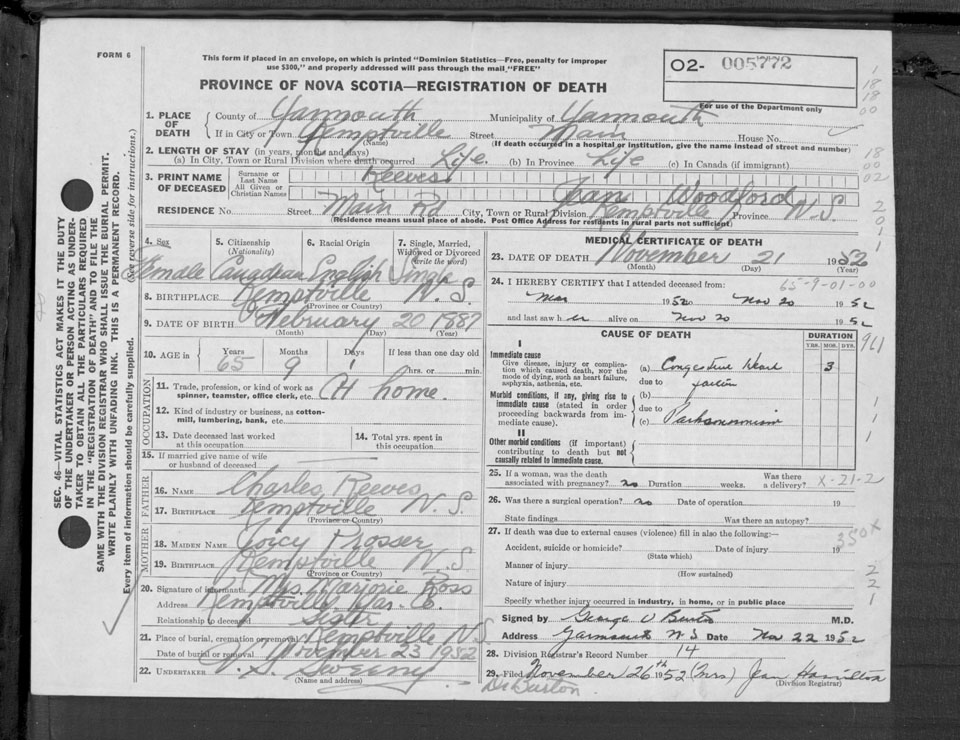 FORM 6
This form if placed in an envelope, on which is printed "Dominion Statistics—Free, penalty for improper
use $300," and properly addressed will pass through the mail "FREE"
PROVINCE OF NOVA SCOTIA—REGISTRATION OF DEATH
O2- 005772
For use of the Department only
SEC. 46—VITAL STATISTICS ACT MAKES IT THE DUTY
OF THE UNDERTAKER OR PERSON ACTING AS UNDER-
TAKER TO OBTAIN ALL THE PARTICULARS REQUIRED
IN THE "REGISTRATION OF DEATH" AND TO FILE THE
SAME WITH THE DIVISION REGISTRAR WHO SHALL ISSUE THE BURIAL PERMIT.
WRITE PLAINLY WITH UNFADING INK. THIS IS A PERMANENT RECORD.
Every item of information should be carefully supplied. (See reverse side for instructions.)
1. PLACE OF DEATH County of Yarmouth Municipality of Yarmouth
If in City or Town Kemptville Street Main House No.
(Name) (If death occurred in a hospital or institution, give the name instead of street and number)
2. LENGTH OF STAY (in years, months and days)
(a) In City, Town or Rural Division where death occurred Life. (b) In Province Life (c) In Canada (if immigrant)
3. PRINT NAME OF DECEASED Surname or Last Name Reeves
All Given or Christian Names Jean Woodford
RESIDENCE No. Street Main Rd City, Town or Rural Division Kemptville Province N.S.
(Residence means usual place of abode. Post Office Address for residents in rural parts not sufficient)
4. Sex 5. Citizenship (Nationality) 6. Racial Origin 7. Single, Married, Widowed or Divorced (write the word)
Female Canadian English Single
8. BIRTHPLACE Kemptville N.S.
(Province or Country)
9. DATE OF BIRTH February 20 1887
(Month) (Day) (Year)
10. AGE in Years Months Days If less than one day old
65 9 1 hrs. or min.
OCCUPATION
11. Trade, profession, or kind of work as
spinner, teamster, office clerk, etc. At home.
12. Kind of industry or business, as cotton-
mill, lumbering, bank, etc.
13. Date deceased last worked
at this occupation
14. Total yrs. spent in
this occupation
15. If married give name of wife
or husband of deceased
FATHER
16. NAME Charles Reeves
17. BIRTHPLACE Kemptville N.S.
(Province or Country)
MOTHER
18. MAIDEN NAME Joicy Prosser
19. BIRTHPLACE Kemptville N.S.
(Province or Country)
20. Signature of informant Mrs. Marjorie Ross
Address Kemptville, Yar. Co.
Relationship to deceased Sister
21. Place of burial, cremation or removal Kemptville N.S.
Date of burial or removal November 23 1952
22. UNDERTAKER Sweeny
(Name and address)
MEDICAL CERTIFICATE OF DEATH
23. DATE OF DEATH November 21 1952
(Month) (Day) (Year)
24. I HEREBY CERTIFY that I attended deceased from:
65-9-01-00
Mar 1952 to Nov 20 1952
and last saw her alive on Nov 20 1952
CAUSE OF DEATH DURATION
YRS. MOS. DYS.
I
Immediate cause
Give disease, injury or complica-
tion which caused death, not the
mode of dying, such as heart failure,
asphyxia, asthenia, etc.
(a) Congestive Heart 3
due to failure
Morbid conditions, if any, giving rise to
immediate cause (stated in order
proceeding backwards from im-
mediate cause).
(b)
due to
(c) Parkinsonism
II
Other morbid conditions (if important)
contributing to death but not
causally related to immediate cause.
25. If a woman, was the death
associated with pregnancy? no Duration weeks. Was there a delivery? X-21-2
26. Was there a surgical operation? no Date of operation 19
State findings Was there an autopsy?
27. If death was due to external causes (violence) fill in also the following:—
Accident, suicide or homicide? Date of injury 19
(State which)
350x
Manner of injury
(How sustained)
Nature of injury
Specify whether injury occurred in industry, in home, or in public place
Signed by George V Burton M.D.
Address Yarmouth N S Date Nov 22 1952
28. Division Registrar's Record Number 14
29. Filed November 26th 1952 (Mrs) Jean Hamilton
(Division Registrar)
Dr Burton.